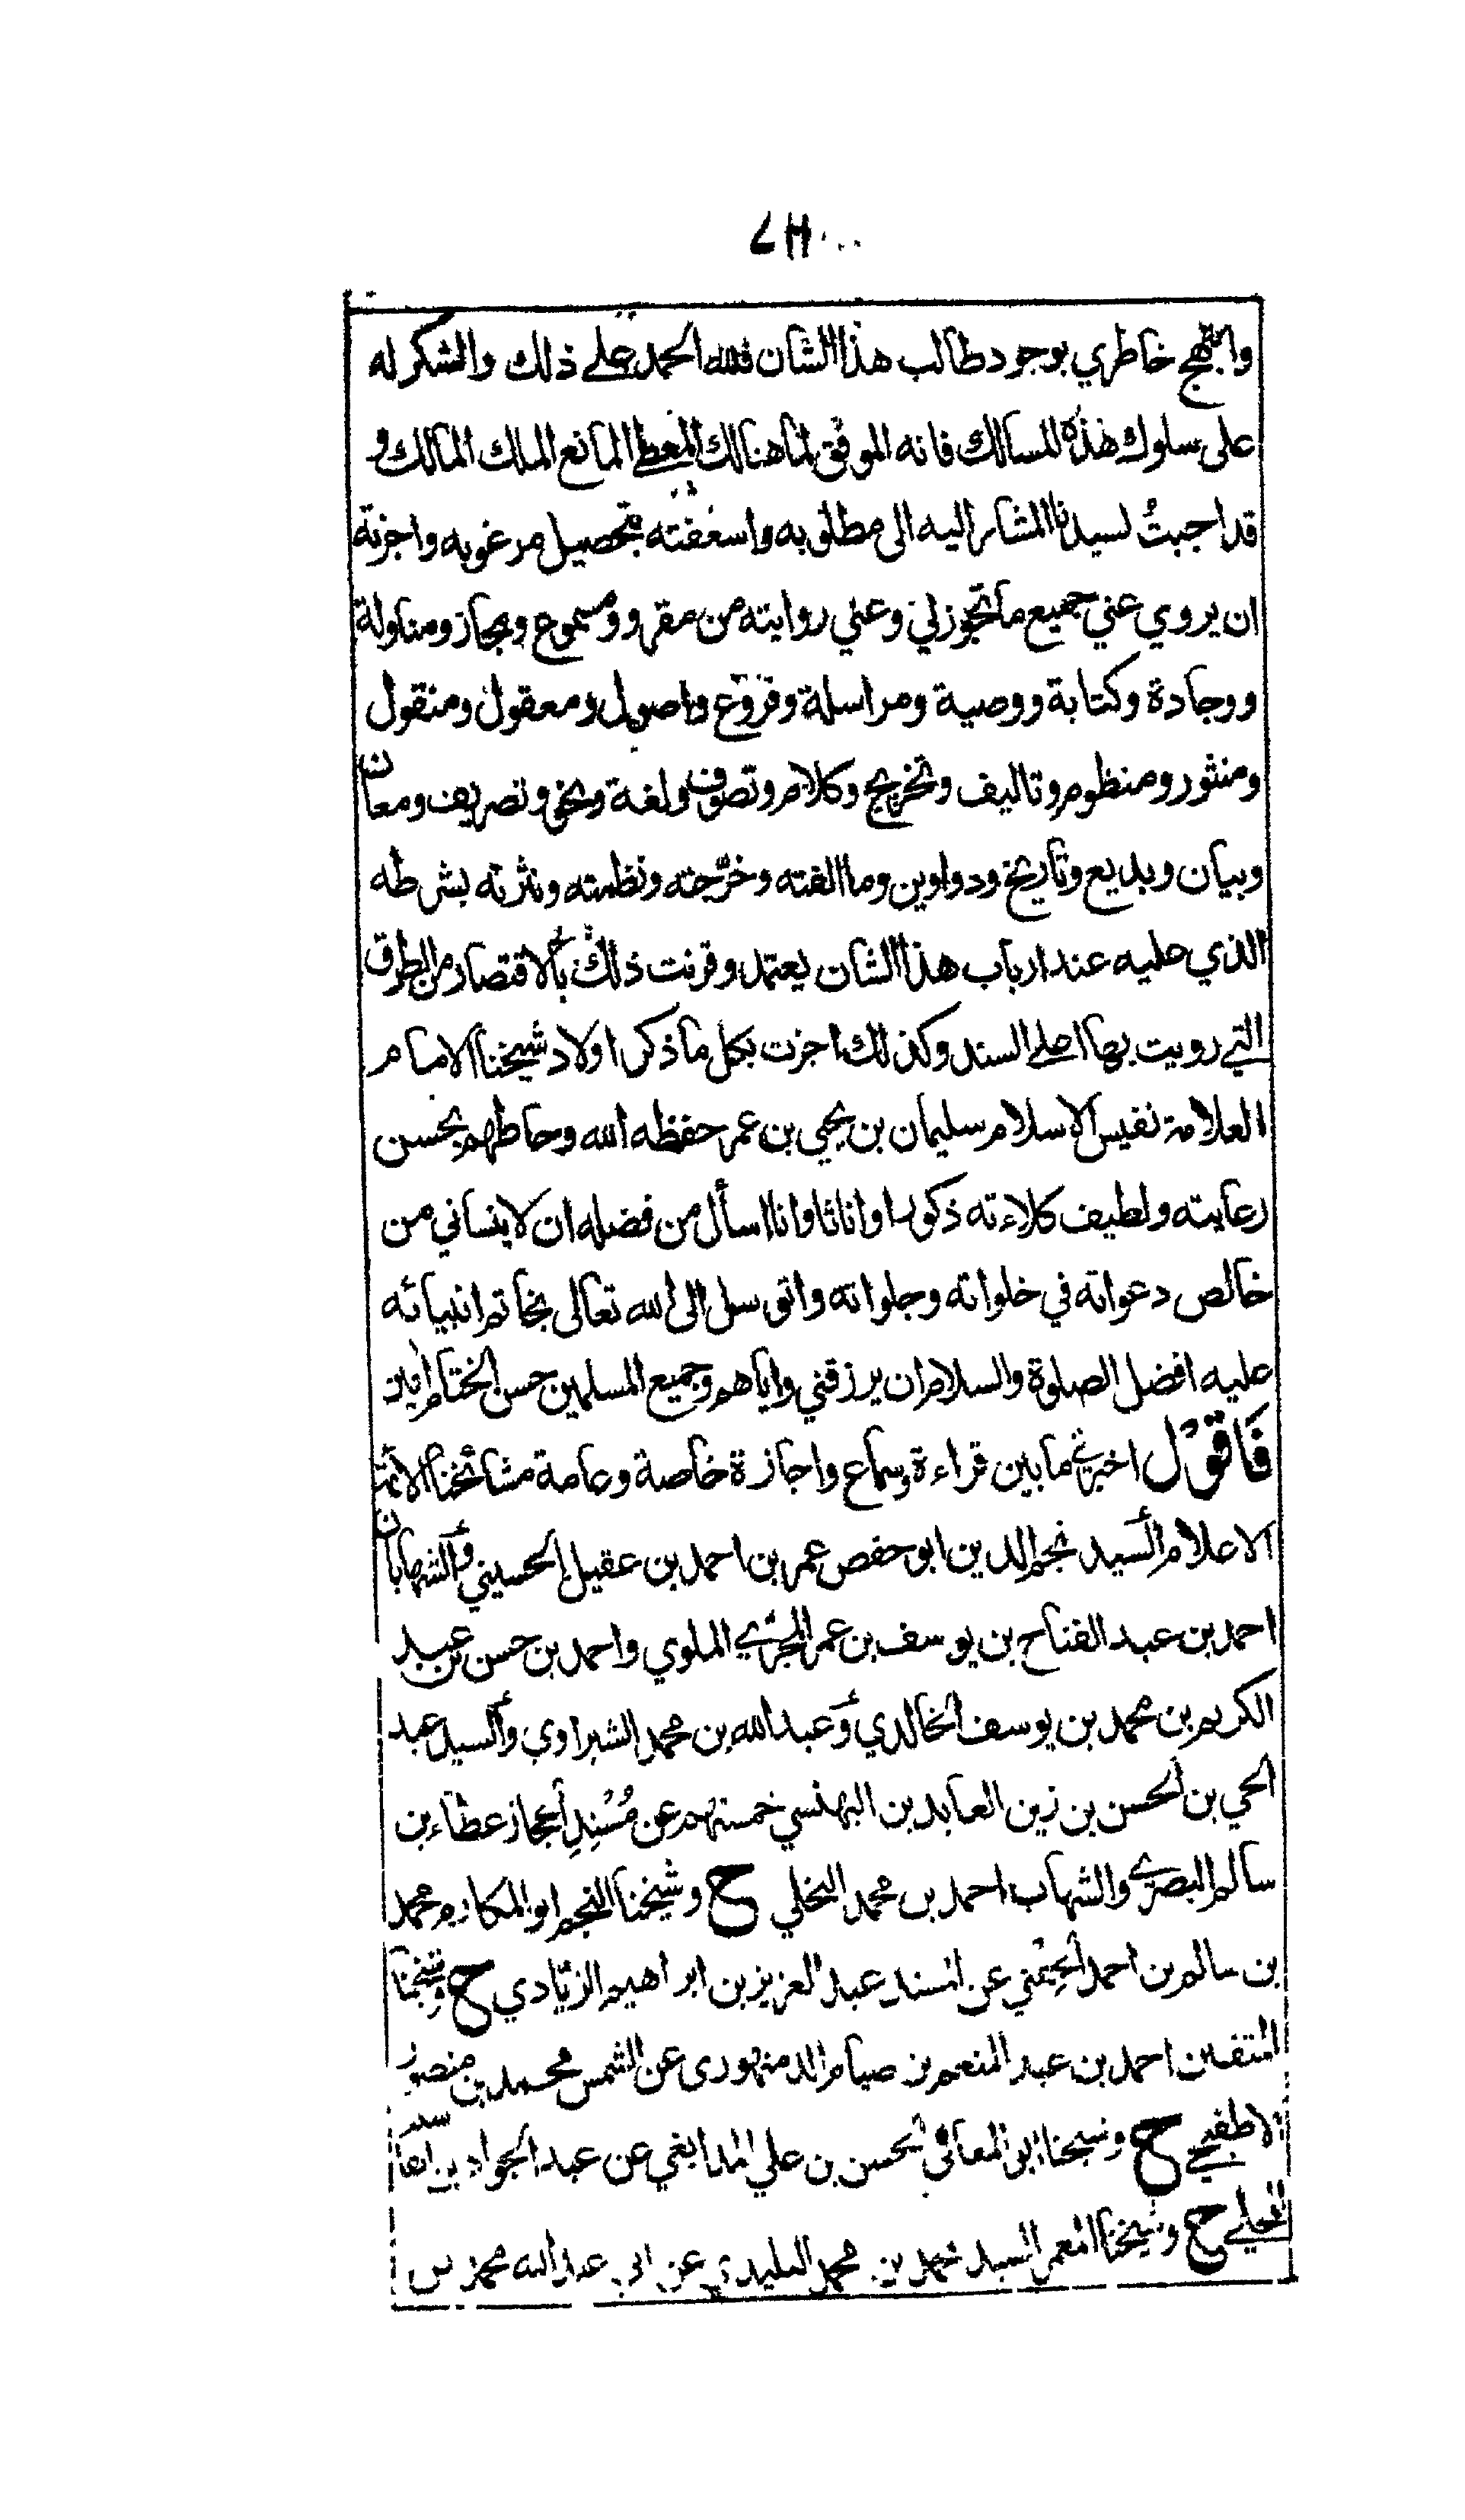 وابتهج خاطري بوجود طالب هذا الشان فلله الحمد على ذلك والشكر له
على سلوك هذه المسالك فانه الموفق لما هنالك المعطي المانع الملك المالك و
قد اجبتُ لسيدنا المشار اليه الى مطلوبه واسعفته بتحصيل مرغوبه واجزته
ان يروي عني جميع ما تجوز لي وعني روايته من مقروو ومسموع ومجاز ومناولة
ووجادة وكتابة ووصية ومراسلة وفروع واصول ومعقول ومنقول
ومنثور ومنظوم وتاليف وتخريج وكلام وتصوف ولغة ونحو وتصريف ومعان
وبيان وبديع وتاريخ ودواوين وما الفته وخرّجته ونظمته ونثرته بشرطه
الذي عليه عند ارباب هذا الشان يعتمد وقرنت ذلك بالاقتصار من الطرق
التي رويت بها اعلى السند وكذلك اجزت بكل ما ذكر اولاد شيخنا الامام
العلامة نفيس الاسلام سليمان بن يحيى بن عمر حفظه الله وحاطهم بحسن
رعايته ولطيف كلاءته ذكورا واناثا وانا اسأل من فضله ان لا ينساني من
خالص دعواته في خلواته وجلواته واتوسل الى الله تعالى بخاتم انبيائه
عليه افضل الصلوة والسلام ان يرزقني واياهم وجميع المسلمين حسن الختام امين
فَاقوْل اخبرني ما بين قراءة وسماع واجازة خاصة وعامة مشائخنا الائمة
الاعلام السيد نجم الدين ابو حفص عمر بن احمد بن عقيل الحسيني والشهابان
احمد بن عبد الفتاح بن يوسف بن عمر المجيري الملوي واحمد بن حسن بن عبد
الكريم بن محمد بن يوسف الخالدي وَعبد الله بن محمد الشبراوي والسيد عبد
الحي بن الحسن بن زين العابدين البهنسي خمستهم عن مُسْنِدِ الحجاز عطاء بن
سالم البصري والشهاب احمد بن محمد النخلي ح وشيخنا النجم ابو المكارم محمد
بن سالم بن احمد الحِفْني عن المسند عبد العزيز بن ابراهيم الزيادي ح وشيخنا
المتفنن احمد بن عبد المنعم بن صيام الدمنهوري عن الشمس محمد بن منصور
الاطفيحي ح وشيخنا ابو المعالي الحسن بن علي المدابغي عن عبد الجواد بن القاسم
المحلي ح وشيخنا المعمر السيد محمد بن محمد البليدي عن ابي عبد الله محمد بن